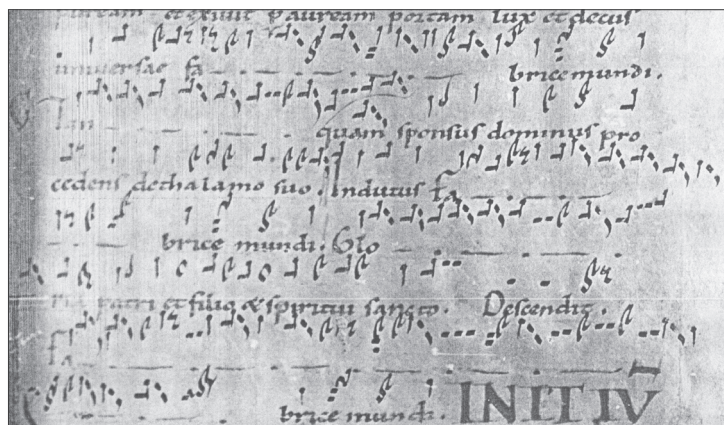 puream et exivit p auream portam lux et decus
universae fa bricemundi.
Tan quam sponsus dominus pro
cedens dethalamo suo. Indutus fa
brice mundi. Glo
ria patri et filio & spiritui sancto. Descendit.
fa
brice mundi. INITIV